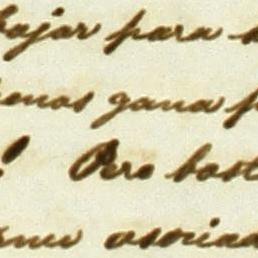 bajar para
enos gana
! Pero bast
asociad